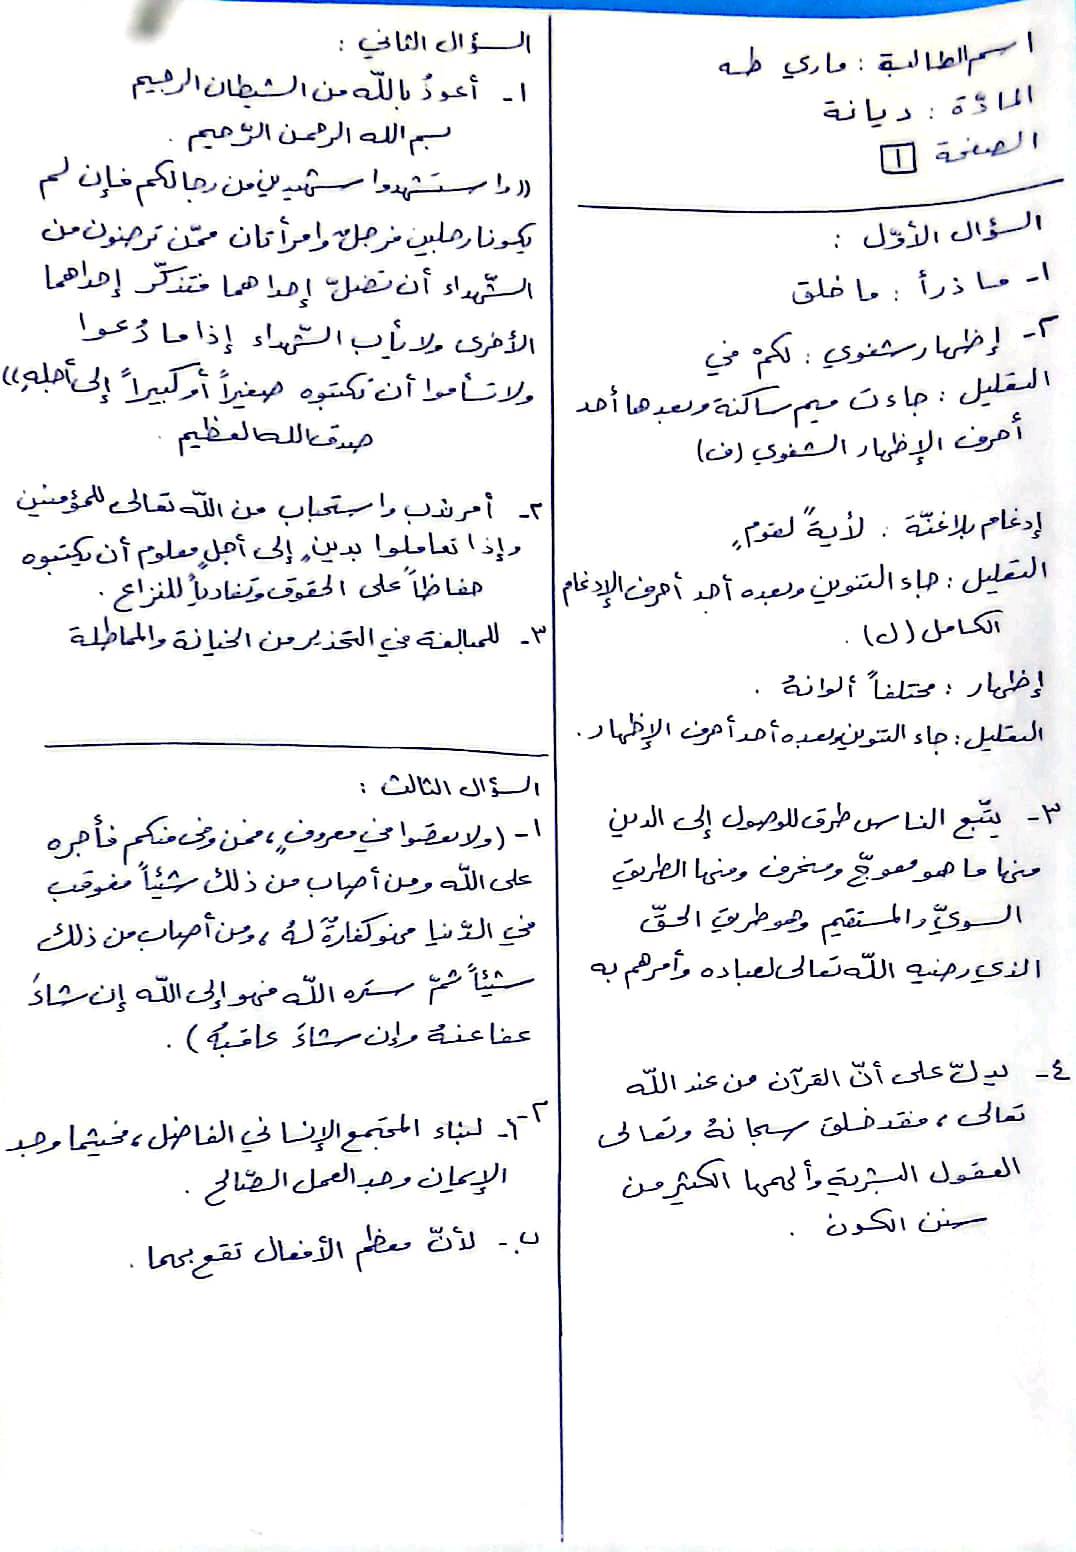 اسم الطالبة : ماري طه
المادّة : ديانة
الصفحة 1
السؤال الأوّل :
١- ما ذرأ : ما خلق
٢- إظهار شفوي : لكمْ في
التعليل : جاءت ميم ساكنة وبعدها أحد
أحرف الإظهار الشفوي (ف)
إدغام بلاغنّة : لأيةً لقومٍ
التعليل : جاء التنوين وبعده أحد أحرف الإدغام
الكامل (ل) .
إظهار : مختلفاً ألوانهُ .
التعليل : جاء التنوين وبعده أحد أحرف الإظهار .
٣- يتّبع الناس طرق للوصول إلى الدين
منها ما هو معوجّ ومنحرف ومنها الطريق
السويّ والمستقيم وهو طريق الحقّ
الذي رضيه اللّه تعالى لعباده وأمرهم به
٤- يدلّ على أنّ القرآن من عند اللّه
تعالى ، فقد خلق سبحانهُ وتعالى
العقول البشرية وألهمها الكثير من
سنن الكون .
السؤال الثاني :
١- أعوذُ باللّه من الشيطان الرجيم
بسم الله الرحمن الرّحيم .
((واستشهدوا شهيدين من رجالكم فإن لم
يكونا رجلين فرجلٌ وامرأتان ممّن ترضون من
الشّهداء أن تضلّ إحداهما فتذكّر إحداهما
الأخرى ولا يأب الشّهداء إذا ما دُعوا
ولا تسأموا أن تكتبوه صغيراً أو كبيراً إلى أجلهِ))
صدق الله العظيم .
٢- أمر ندب واستحباب من اللّه تعالى للمؤمنين
وإذا تعاملوا بدينٍ إلى أجلٍ معلوم أن يكتبوه
حفاظاً على الحقوق وتفادياً للنزاع .
٣- للمبالغة في التحذير من الخيانة والمماطلة
السؤال الثالث :
١- (ولا تعصوا في معروفٍ ، فمن وفى منكم فأجره
على اللّه ومن أصاب من ذلك شيئاً فعوقب
في الدّنيا فهو كفارةٌ لهُ ، ومن أصاب من ذلك
شيئاً ثمّ ستره اللّه فهو إلى اللّه إن شاءَ
عفا عنهُ وإن شاءَ عاقبهُ) .
٢- أ- لبناء المجتمع الإنساني الفاضل ، فحيثما وجد
الإيمان وجد العمل الصّالح .
ب- لأنّ معظم الأفعال تقع بهما .